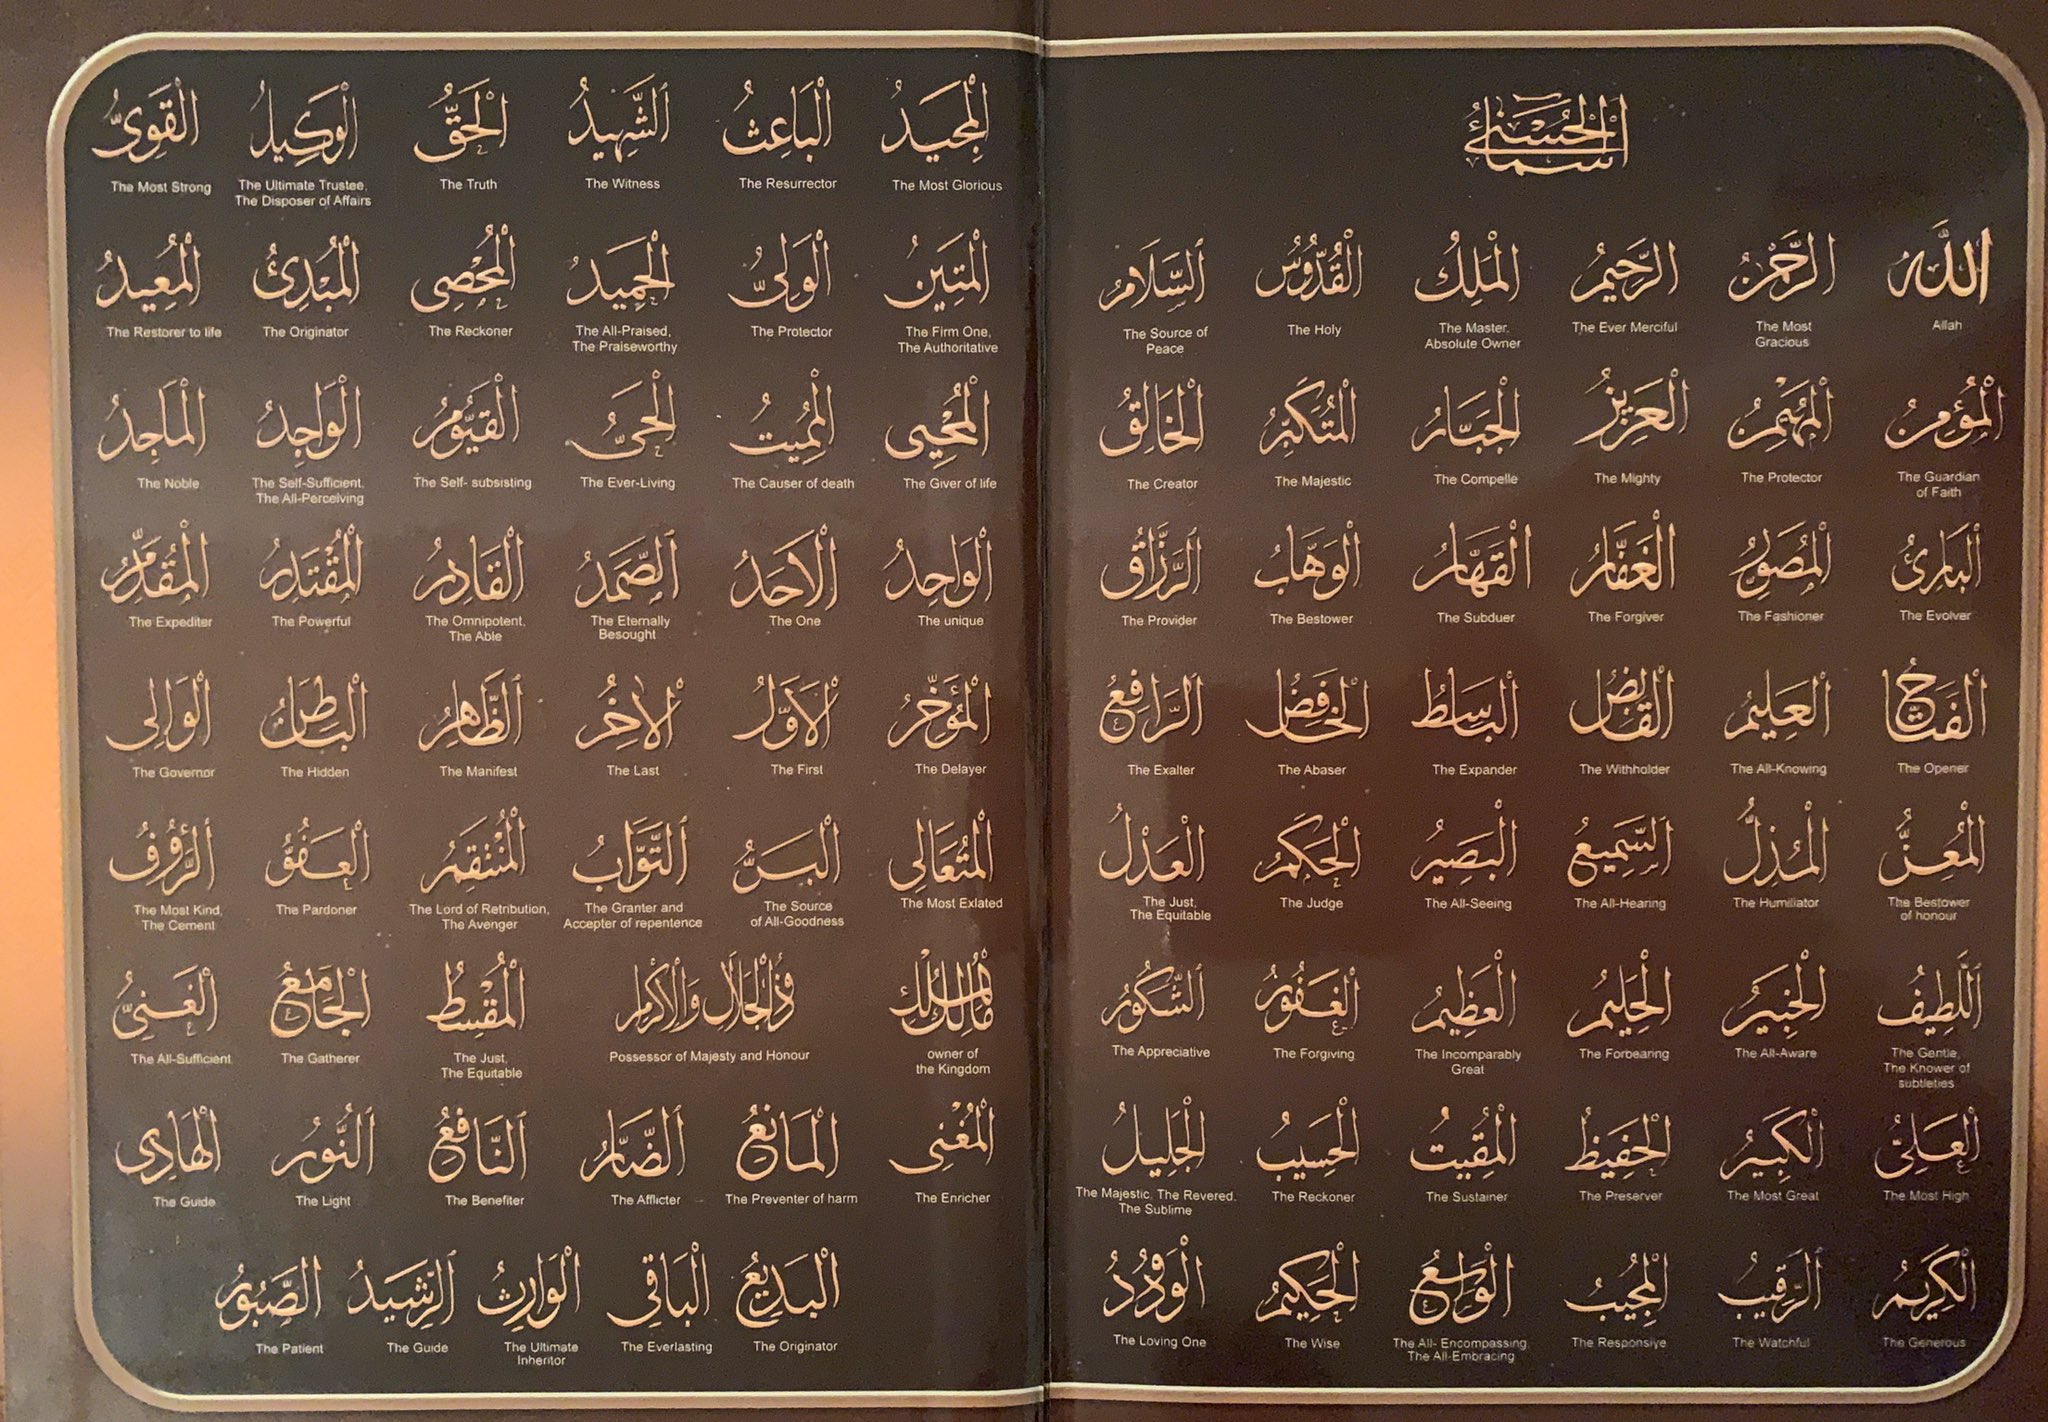 أَسْمَاءُ الْحُسْنَىٰ
اللَّهُ
Allah
الرَّحْمٰنُ
The Most
Gracious
الرَّحِيمُ
The Ever Merciful
الْمَلِكُ
The Master.
Absolute Owner
الْقُدُّوسُ
The Holy
السَّلَامُ
The Source of
Peace
الْمُؤْمِنُ
The Guardian
of Faith
الْمُهَيْمِنُ
The Protector
الْعَزِيزُ
The Mighty
الْجَبَّارُ
The Compelle
الْمُتَكَبِّرُ
The Majestic
الْخَالِقُ
The Creator
الْبَارِئُ
The Evolver
الْمُصَوِّرُ
The Fashioner
الْغَفَّارُ
The Forgiver
الْقَهَّارُ
The Subduer
الْوَهَّابُ
The Bestower
الرَّزَّاقُ
The Provider
الْفَتَّاحُ
The Opener
الْعَلِيمُ
The All-Knowing
الْقَابِضُ
The Withholder
الْبَاسِطُ
The Expander
الْخَافِضُ
The Abaser
الرَّافِعُ
The Exalter
الْمُعِزُّ
The Bestower
of honour
الْمُذِلُّ
The Humiliator
السَّمِيعُ
The All-Hearing
الْبَصِيرُ
The All-Seeing
الْحَكَمُ
The Judge
الْعَدْلُ
The Just,
The Equitable
اللَّطِيفُ
The Gentle,
The Knower of
subtleties
الْخَبِيرُ
The All-Aware
الْحَلِيمُ
The Forbearing
الْعَظِيمُ
The Incomparably
Great
الْغَفُورُ
The Forgiving
الشَّكُورُ
The Appreciative
الْعَلِيُّ
The Most High
الْكَبِيرُ
The Most Great
الْحَفِيظُ
The Preserver
الْمُقِيتُ
The Sustainer
الْحَسِيبُ
The Reckoner
الْجَلِيلُ
The Majestic, The Revered.
The Sublime
الْكَرِيمُ
The Generous
الرَّقِيبُ
The Watchful
الْمُجِيبُ
The Responsive
الْوَاسِعُ
The All- Encompassing
The All-Embracing
الْحَكِيمُ
The Wise
الْوَدُودُ
The Loving One
الْمَجِيدُ
The Most Glorious
الْبَاعِثُ
The Resurrector
الشَّهِيدُ
The Witness
الْحَقُّ
The Truth
الْوَكِيلُ
The Ultimate Trustee,
The Disposer of Affairs
الْقَوِىُّ
The Most Strong
الْمَتِينُ
The Firm One,
The Authoritative
الْوَلِىُّ
The Protector
الْحَمِيدُ
The All-Praised,
The Praiseworthy
الْمُحْصِى
The Reckoner
الْمُبْدِئُ
The Originator
الْمُعِيدُ
The Restorer to life
الْمُحْيِى
The Giver of life
الْمُمِيتُ
The Causer of death
الْحَىُّ
The Ever-Living
الْقَيُّومُ
The Self- subsisting
الْوَاجِدُ
The Self-Sufficient,
The All-Perceiving
الْمَاجِدُ
The Noble
الْوَاحِدُ
The unique
الْأَحَدُ
The One
الصَّمَدُ
The Eternally
Besought
الْقَادِرُ
The Omnipotent,
The Able
الْمُقْتَدِرُ
The Powerful
الْمُقَدِّمُ
The Expediter
الْمُؤَخِّرُ
The Delayer
الْأَوَّلُ
The First
الْآخِرُ
The Last
الظَّاهِرُ
The Manifest
الْبَاطِنُ
The Hidden
الْوَالِى
The Governor
الْمُتَعَالِى
The Most Exlated
الْبَرُّ
The Source
of All-Goodness
التَّوَّابُ
The Granter and
Accepter of repentence
الْمُنْتَقِمُ
The Lord of Retribution,
The Avenger
الْعَفُوُّ
The Pardoner
الرَّؤُوفُ
The Most Kind,
The Cement
مَالِكُ الْمُلْكِ
owner of
the Kingdom
ذُو الْجَلَالِ وَالْإِكْرَامِ
Possessor of Majesty and Honour
الْمُقْسِطُ
The Just,
The Equitable
الْجَامِعُ
The Gatherer
الْغَنِىُّ
The All-Sufficient
الْمُغْنِى
The Enricher
الْمَانِعُ
The Preventer of harm
الضَّارُّ
The Afflicter
النَّافِعُ
The Benefiter
النُّورُ
The Light
الْهَادِى
The Guide
الْبَدِيعُ
The Originator
الْبَاقِى
The Everlasting
الْوَارِثُ
The Ultimate
Inheritor
الرَّشِيدُ
The Guide
الصَّبُورُ
The Patient